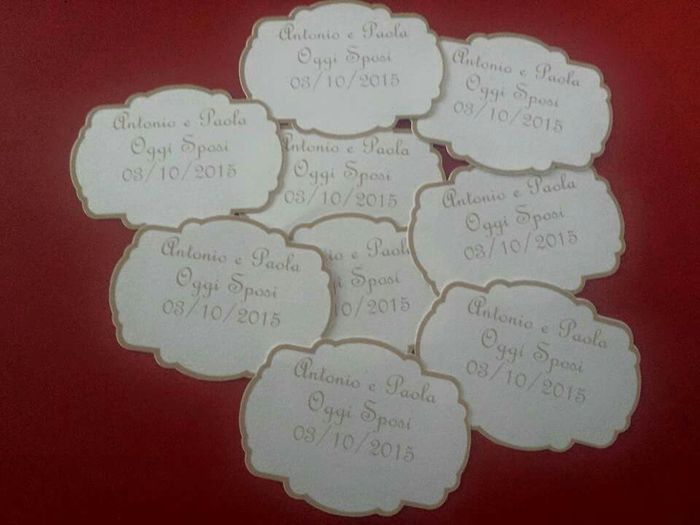 Antonio e Paola
Oggi Sposi
03/10/2015
Antonio e Paola
Oggi Sposi
03/10/2015
Antonio e Paola
Oggi Sposi
03/10/2015
Antonio e Paola
Oggi Sposi
03/10/2015
Antonio e Paola
Oggi Sposi
03/10/2015
Antonio e Paola
Oggi Sposi
03/10/2015
e
Sposi
/10/2015
Antonio e Paola
Oggi Sposi
03/10/2015
Antonio e Paola
Oggi Sposi
03/10/2015